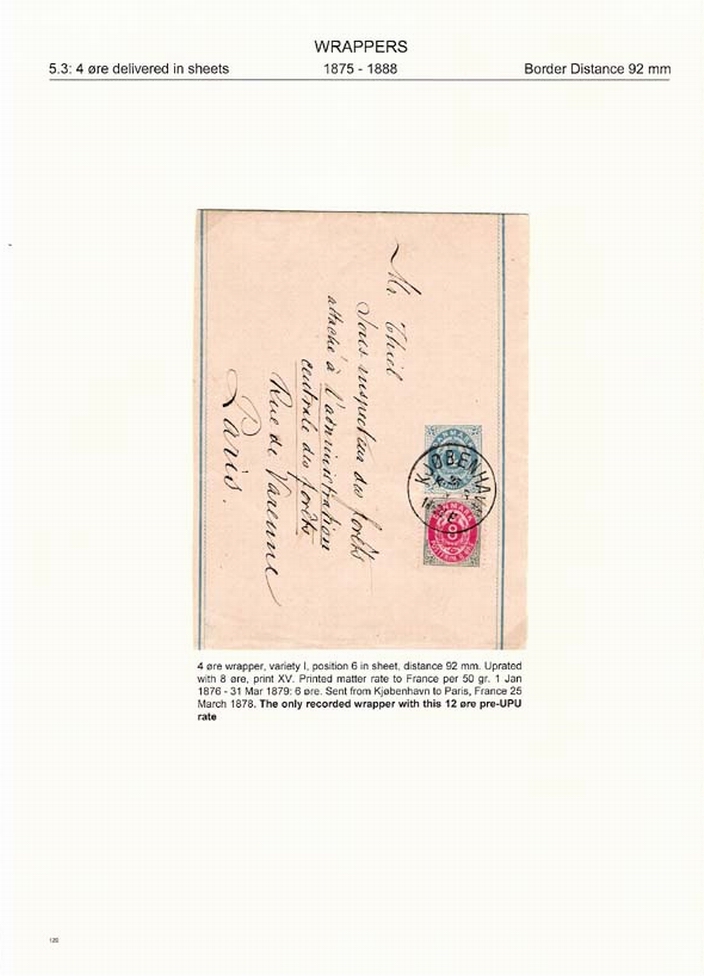 WRAPPERS
5.3: 4 øre delivered in sheets 1875 - 1888 Border Distance 92 mm
Mr. Thiél
Sous inspecteur des forêts
attaché à l'administration
centrale des forêts
Rue de Varenne
Paris.
DANMARK
KJØBENHAVN
DANMARK
8
POSTFRIM. 8 ØRE
4 øre wrapper, variety I, position 6 in sheet, distance 92 mm. Uprated
with 8 øre, print XV. Printed matter rate to France per 50 gr. 1 Jan
1876 - 31 Mar 1879: 6 øre. Sent from Kjøbenhavn to Paris, France 25
March 1878. The only recorded wrapper with this 12 øre pre-UPU
rate